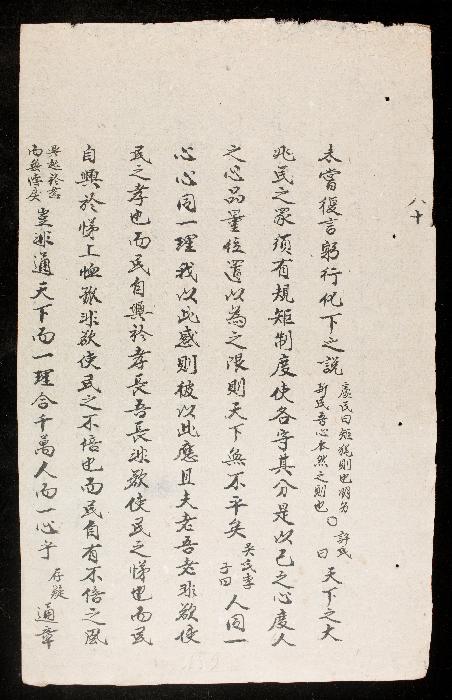 八十
未嘗復言躬行化下之說盧氏曰矩猶則也明為新民吾心本然之則也〇許氏曰天下之大
兆民之眾須有規矩制度使各守其分是以己之心度人
之心品量位置以為之限則天下無不平矣吳氏季子曰人同一
心心同一理我以此感則彼以此應且夫老吾老非欲使
民之孝也而民自興於孝長吾長非欲使民之悌也而民
自興於悌上恤孤非欲使民之不倍也而民自有不倍之風
起於善而無悖戾豈非通天下而一理合千萬人而一心乎存疑通章